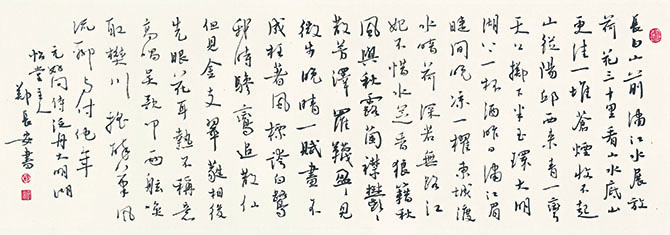 長白山前繡江水展放
荷花三十里看山水底山
更佳一堆蒼煙收不起
山從陽邱西來青一彎
天公擲下半玉環大明
湖上一杯酒昨日繡江眉
睫間晚涼一櫂東城渡
水暗荷深若無路江
妃不惜水芝香狼籍秋
風與秋露蘭襟鬱鬱
散芳澤羅韈盈盈見
微步晚晴一賦畫不
成枉著風標誇白鷺
我時驂鸞追散仙
但見金支翠蕤相後
先眼花耳熱不稱意
高唱吳歌叩兩舷喚
取樊川搖醉筆風
流聊與付他年
元好問詩泛舟大明湖
怡堂主人 鄭長安書